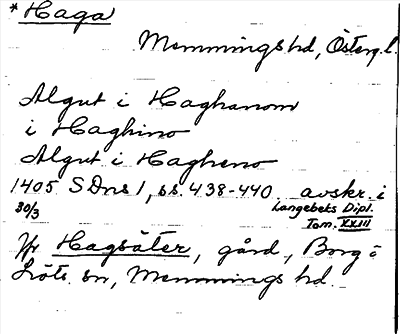 * Haga
Memmings hd, Österg. l.
Algut i Haghanom
i Haghino
Algut i Hagheno
1405 SDns 1, ss. 438-440 avskr. i
30/3 Langebeks Dipl.
Tom. XXIII
Jfr Hagsäter, gård, Borg o
Löts sn, Memmings hd.